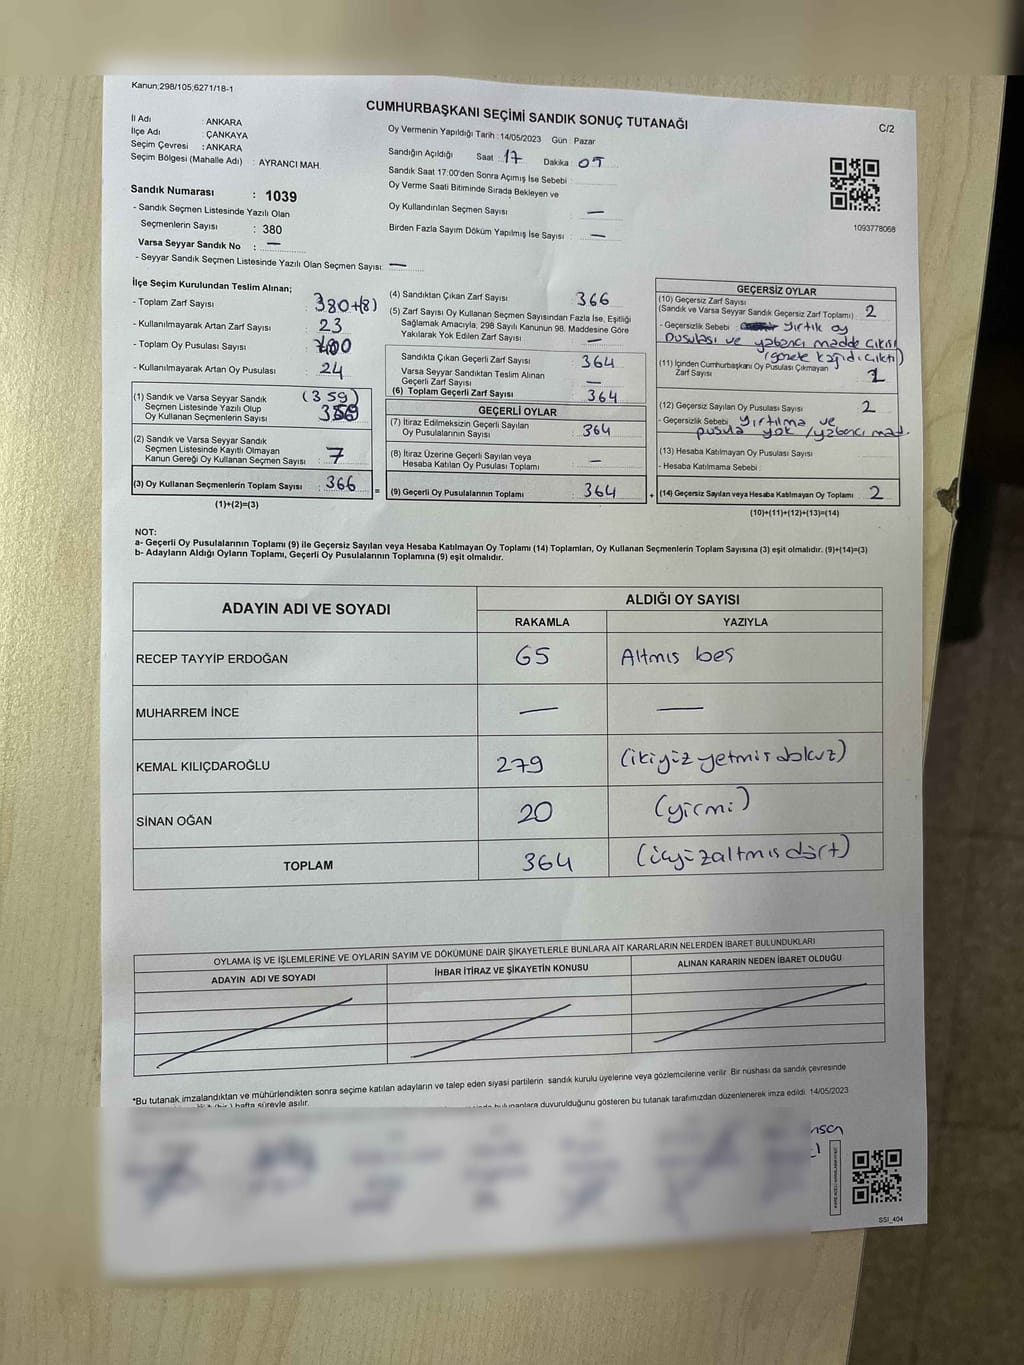 Kanun;298/105;6271/18-1
CUMHURBAŞKANI SEÇİMİ SANDIK SONUÇ TUTANAĞI
C/2
İl Adı : ANKARA
İlçe Adı : ÇANKAYA
Seçim Çevresi : ANKARA
Seçim Bölgesi (Mahalle Adı) : AYRANCI MAH.
Sandık Numarası : 1039
- Sandık Seçmen Listesinde Yazılı Olan
Seçmenlerin Sayısı : 380
Varsa Seyyar Sandık No : —
- Seyyar Sandık Seçmen Listesinde Yazılı Olan Seçmen Sayısı: —
Oy Vermenin Yapıldığı Tarih : 14/05/2023 Gün : Pazar
Sandığın Açıldığı Saat : 17 Dakika : 05
Sandık Saat 17:00'den Sonra Açımış İse Sebebi :
Oy Verme Saati Bitiminde Sırada Bekleyen ve
Oy Kullandırılan Seçmen Sayısı : —
Birden Fazla Sayım Döküm Yapılmış İse Sayısı : —
1093778068
İlçe Seçim Kurulundan Teslim Alınan;
- Toplam Zarf Sayısı : 380+(8)
- Kullanılmayarak Artan Zarf Sayısı : 23
- Toplam Oy Pusulası Sayısı :
- Kullanılmayarak Artan Oy Pusulası : 24
(1) Sandık ve Varsa Seyyar Sandık (359)
Seçmen Listesinde Yazılı Olup
Oy Kullanan Seçmenlerin Sayısı :
(2) Sandık ve Varsa Seyyar Sandık
Seçmen Listesinde Kayıtlı Olmayan
Kanun Gereği Oy Kullanan Seçmen Sayısı : 7
(3) Oy Kullanan Seçmenlerin Toplam Sayısı : 366
(1)+(2)=(3)
(4) Sandıktan Çıkan Zarf Sayısı : 366
(5) Zarf Sayısı Oy Kullanan Seçmen Sayısından Fazla İse, Eşitliği
Sağlamak Amacıyla, 298 Sayılı Kanunun 98. Maddesine Göre
Yakılarak Yok Edilen Zarf Sayısı : —
Sandıkta Çıkan Geçerli Zarf Sayısı : 364
Varsa Seyyar Sandıktan Teslim Alınan
Geçerli Zarf Sayısı : —
(6) Toplam Geçerli Zarf Sayısı : 364
GEÇERLİ OYLAR
(7) İtiraz Edilmeksizin Geçerli Sayılan
Oy Pusulalarının Sayısı : 364
(8) İtiraz Üzerine Geçerli Sayılan veya
Hesaba Katılan Oy Pusulası Toplamı : —
= (9) Geçerli Oy Pusulalarının Toplamı : 364 +
GEÇERSİZ OYLAR
(10) Geçersiz Zarf Sayısı
(Sandık ve Varsa Seyyar Sandık Geçersiz Zarf Toplamı) : 2
- Geçersizlik Sebebi : Yırtık oy
Pusulası ve yabancı madde çıkışı
(gazete kağıdı çıktı)
(11) İçinden Cumhurbaşkanı Oy Pusulası Çıkmayan
Zarf Sayısı :
(12) Geçersiz Sayılan Oy Pusulası Sayısı : 2
- Geçersizlik Sebebi : Yırtılma ve
pusula yok / yabancı mad.
(13) Hesaba Katılmayan Oy Pusulası Sayısı :
- Hesaba Katılmama Sebebi :
(14) Geçersiz Sayılan veya Hesaba Katılmayan Oy Toplamı : 2
(10)+(11)+(12)+(13)=(14)
NOT:
a- Geçerli Oy Pusulalarının Toplamı (9) ile Geçersiz Sayılan veya Hesaba Katılmayan Oy Toplamı (14) Toplamları, Oy Kullanan Seçmenlerin Toplam Sayısına (3) eşit olmalıdır. (9)+(14)=(3)
b- Adayların Aldığı Oyların Toplamı, Geçerli Oy Pusulalarının Toplamına (9) eşit olmalıdır.
ADAYIN ADI VE SOYADI
ALDIĞI OY SAYISI
RAKAMLA YAZIYLA
RECEP TAYYİP ERDOĞAN 65 Altmış beş
MUHARREM İNCE — —
KEMAL KILIÇDAROĞLU 279 (ikiyüzyetmişdokuz)
SİNAN OĞAN 20 (yirmi)
TOPLAM 364 (üçyüzaltmışdört)
OYLAMA İŞ VE İŞLEMLERİNE VE OYLARIN SAYIM VE DÖKÜMÜNE DAİR ŞİKAYETLERLE BUNLARA AİT KARARLARIN NELERDEN İBARET BULUNDUKLARI
ADAYIN ADI VE SOYADI İHBAR İTİRAZ VE ŞİKAYETİN KONUSU ALINAN KARARIN NEDEN İBARET OLDUĞU
*Bu tutanak imzalandıktan ve mühürlendikten sonra seçime katılan adayların ve talep eden siyasi partilerin sandık kurulu üyelerine veya gözlemcilerine verilir. Bir nüshası da sandık çevresinde
(bir) hafta süreyle asılır.
bulunanlara duyurulduğunu gösteren bu tutanak tarafımızdan düzenlenerek imza edildi. 14/05/2023
SSI_404